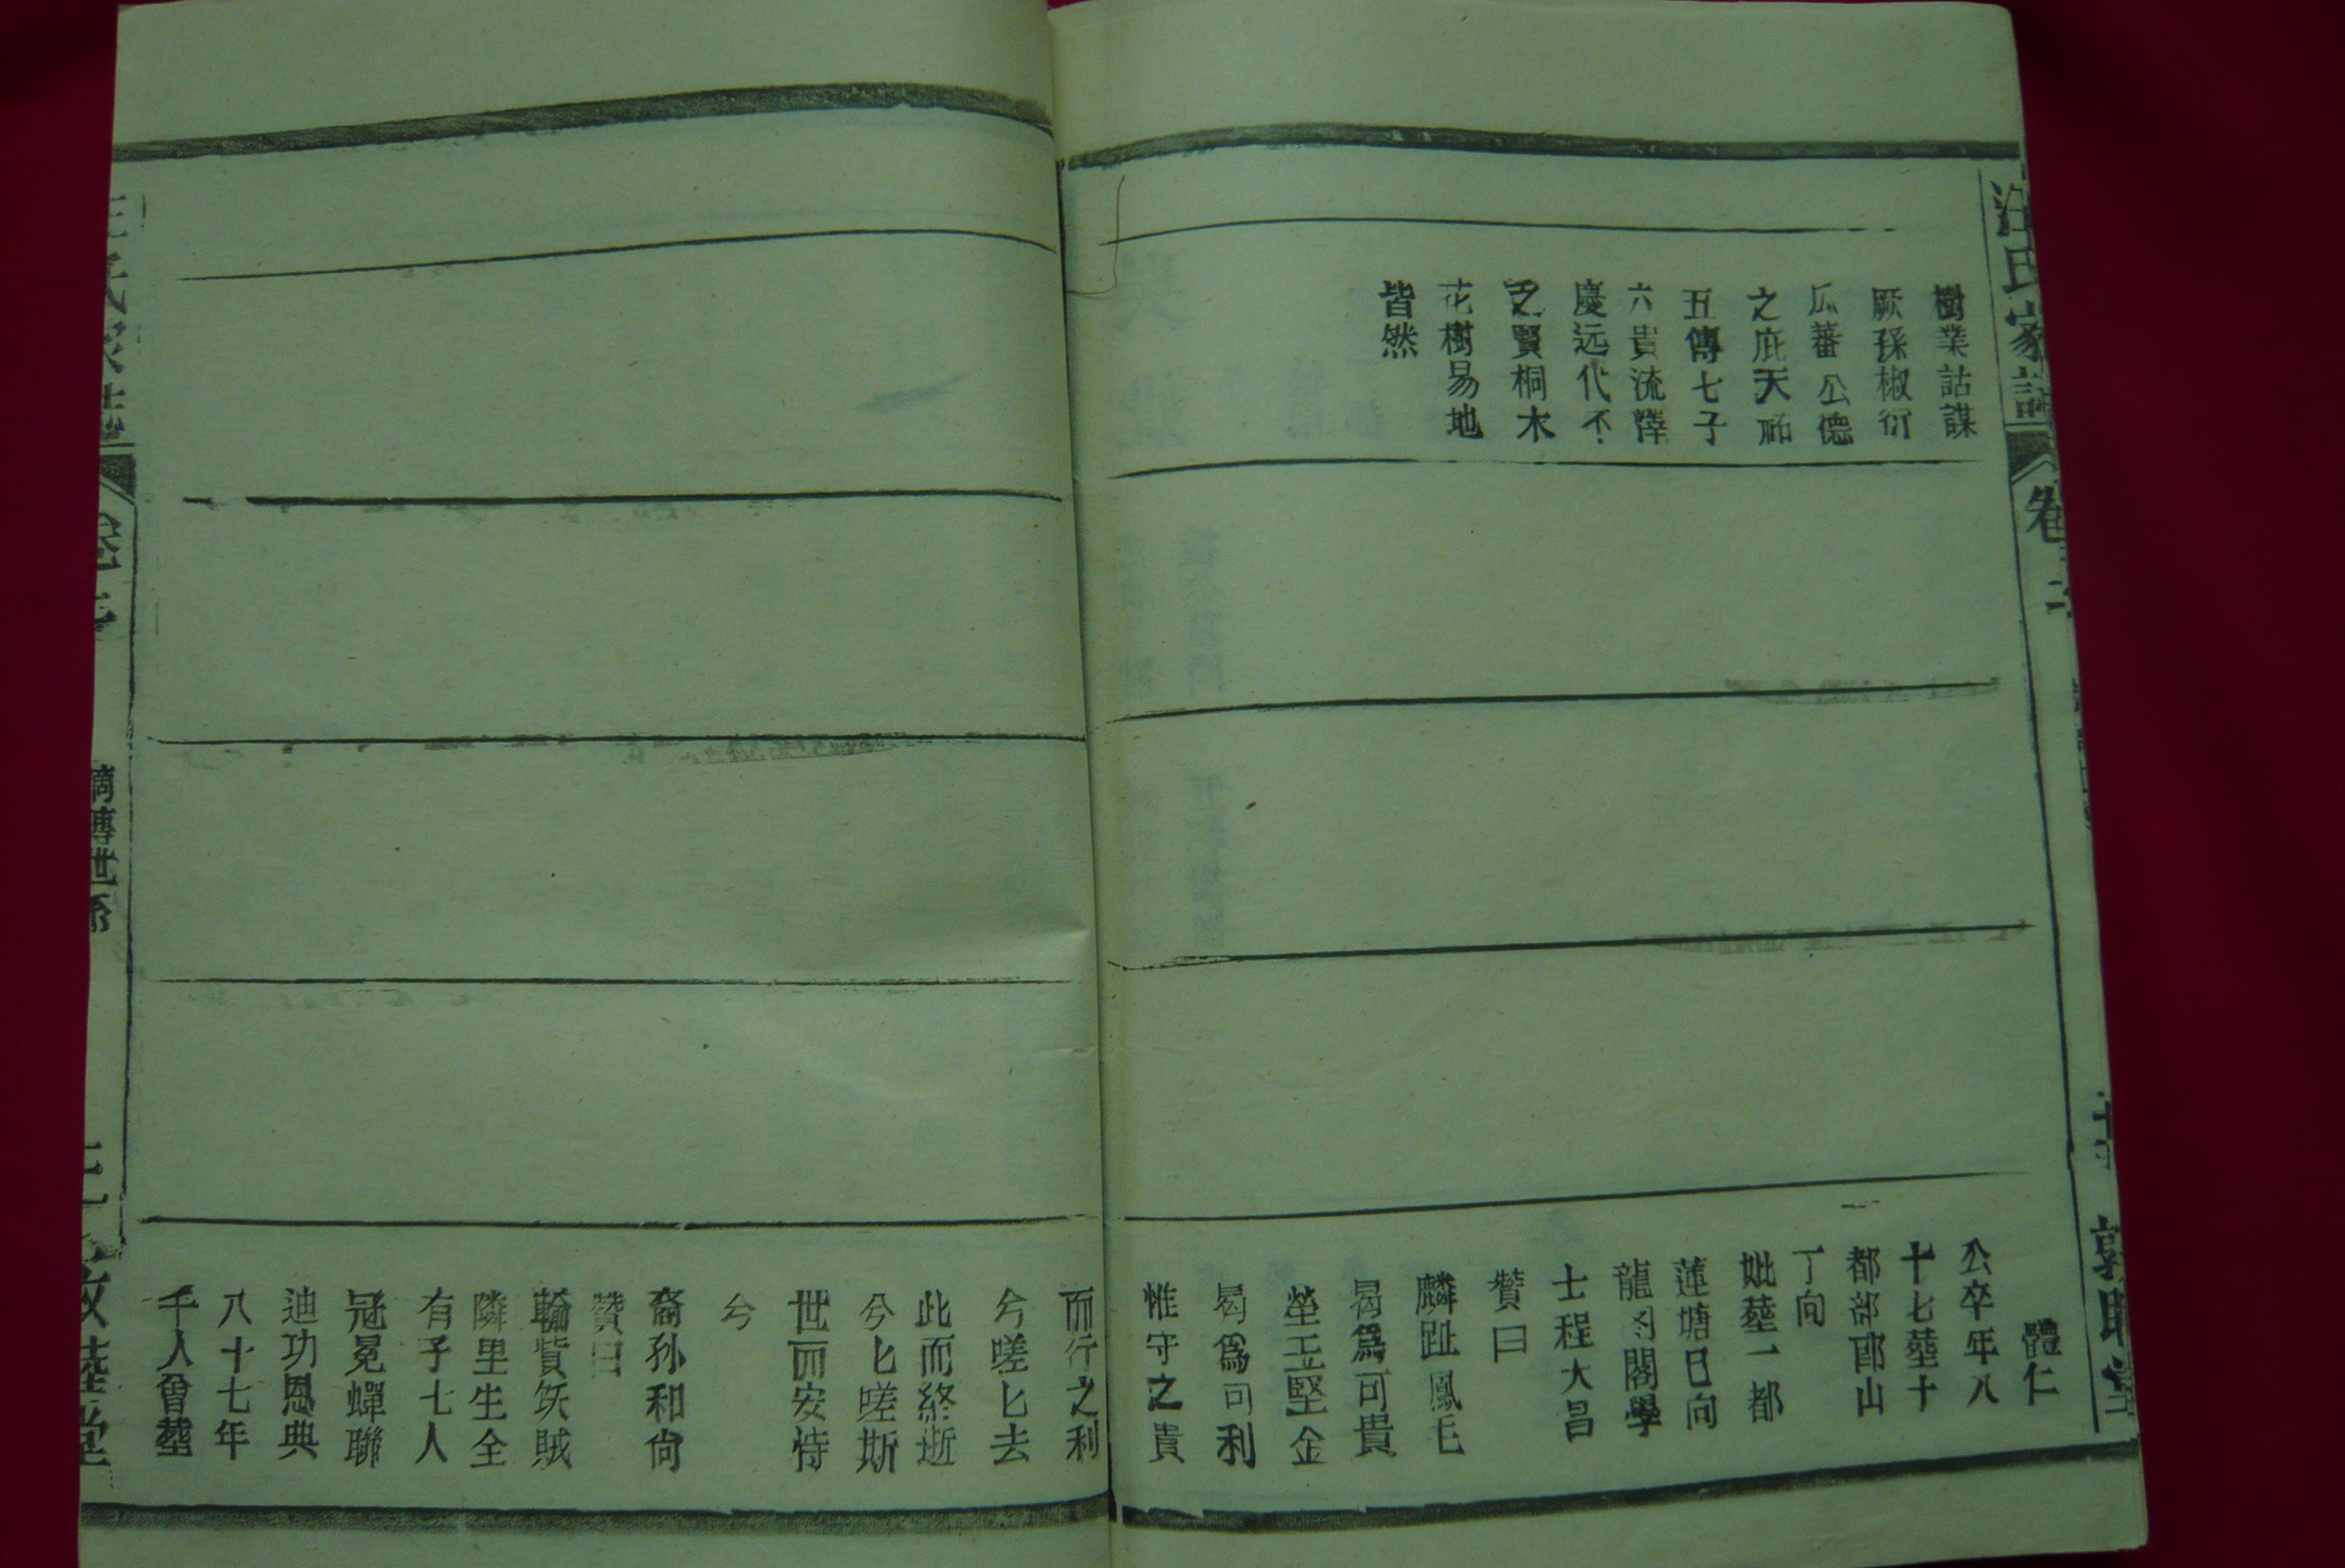 汪氏家譜
卷
樹業詁謀
厥孫椒衍
瓜蕃公德
之庇天祐
五傳七子
六貴流澤
慶远代不
乏賢桐木
花樹易地
皆然
體仁
公卒年八
十七塟十
都部郎山
丁向
妣塟一都
蓮塘巳向
龍图閣學
士程大昌
贊曰
麟趾鳳毛
曷為可貴
瑩玉堅金
曷為可利
惟守之貴
而行之利
兮嗟匕去
此而終逝
兮匕嗟斯
世而安恃
兮
裔孙和尙
贊曰
輸貲殀賊
隣里生全
有子七人
冠冕蟬聯
迪功恩典
八十七年
千人會塟
摘傳世系
敦睦堂